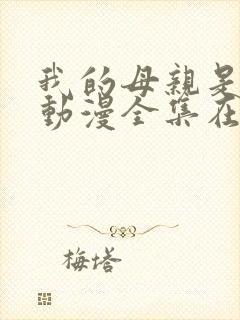 我的母親是
動漫全集在
梅塔